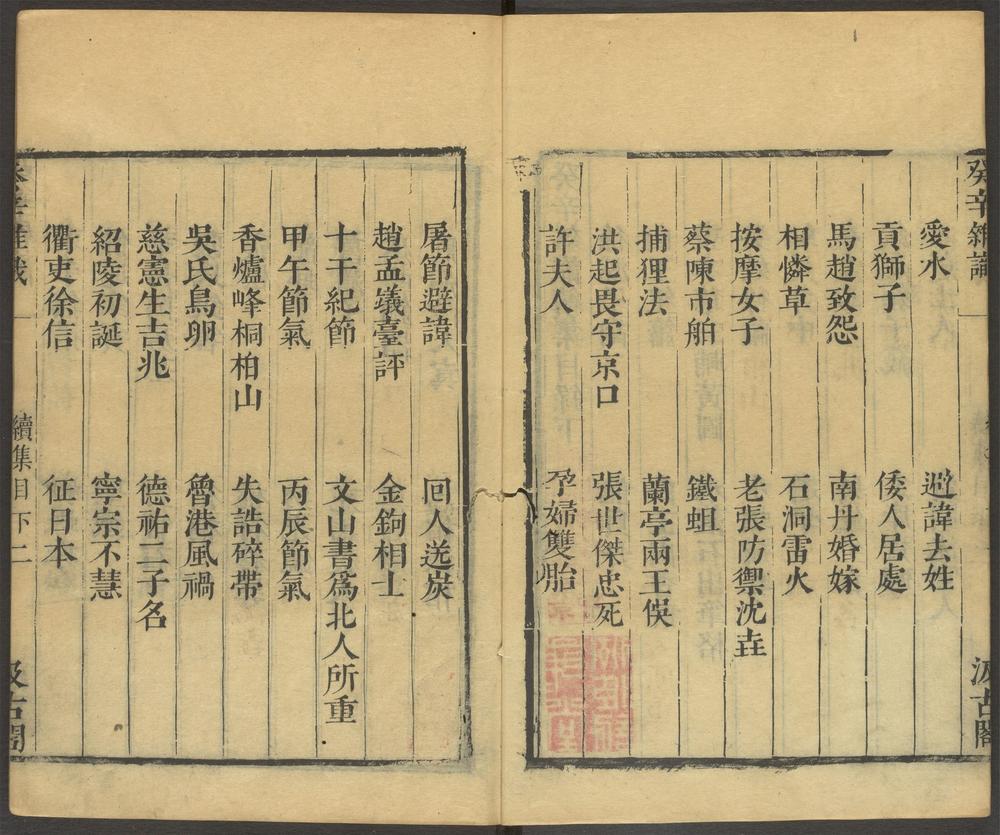 癸辛雜識
汲古閣
愛水 避諱去姓
貢獅子 倭人居處
馬趙致怨 南丹婚嫁
相憐草 石洞雷火
按摩女子 老張防禦沈垚
蔡陳市舶 鐵蛆
捕狸法 蘭亭兩王俁
洪起畏守京口 張世傑忠死
許夫人 孕婦雙胎
屠節避諱 回人送炭
趙孟𧑅臺評 金鉤相士
十干紀節 文山書爲北人所重
甲午節氣 丙辰節氣
香爐峰桐柏山 失誥碎帶
吳氏鳥卵 魯港風禍
慈憲生吉兆 德祐三子名
紹陵初誕 寧宗不慧
衢吏徐信 征日本
癸辛雜識 續集目下 二 汲古閣